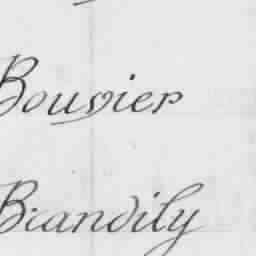 Bouvier
Brandily